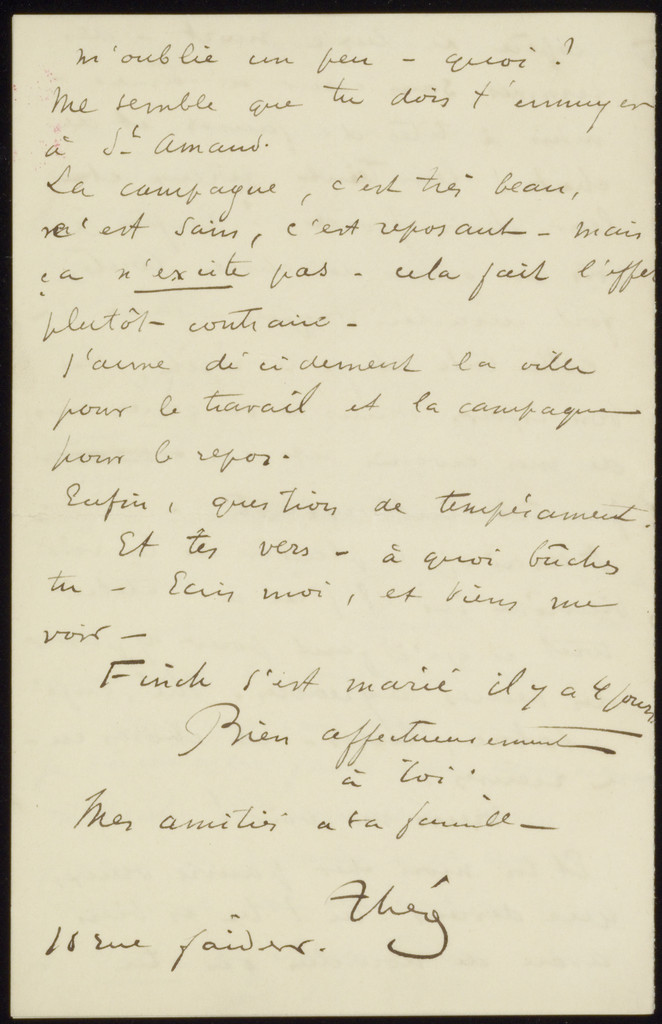 m'oublie un peu – quoi ?
Me semble que tu dois t'ennuyer
à St Amand.
La campagne, c'est très beau,
c'est sain, c'est reposant – mais
ça n'excite pas – cela fait l'effet
plutôt contraire –
J'aime décidement la ville
pour le travail et la campagne
pour le repos.
Enfin, question de tempérament.
Et tes vers – à quoi bûches
tu – Ecris moi, et viens me
voir –
Finch s'est marié il y a 4 jours
Bien affectueusement
à toi
Mes amitiés a ta famille –
Théo
18 rue faider.